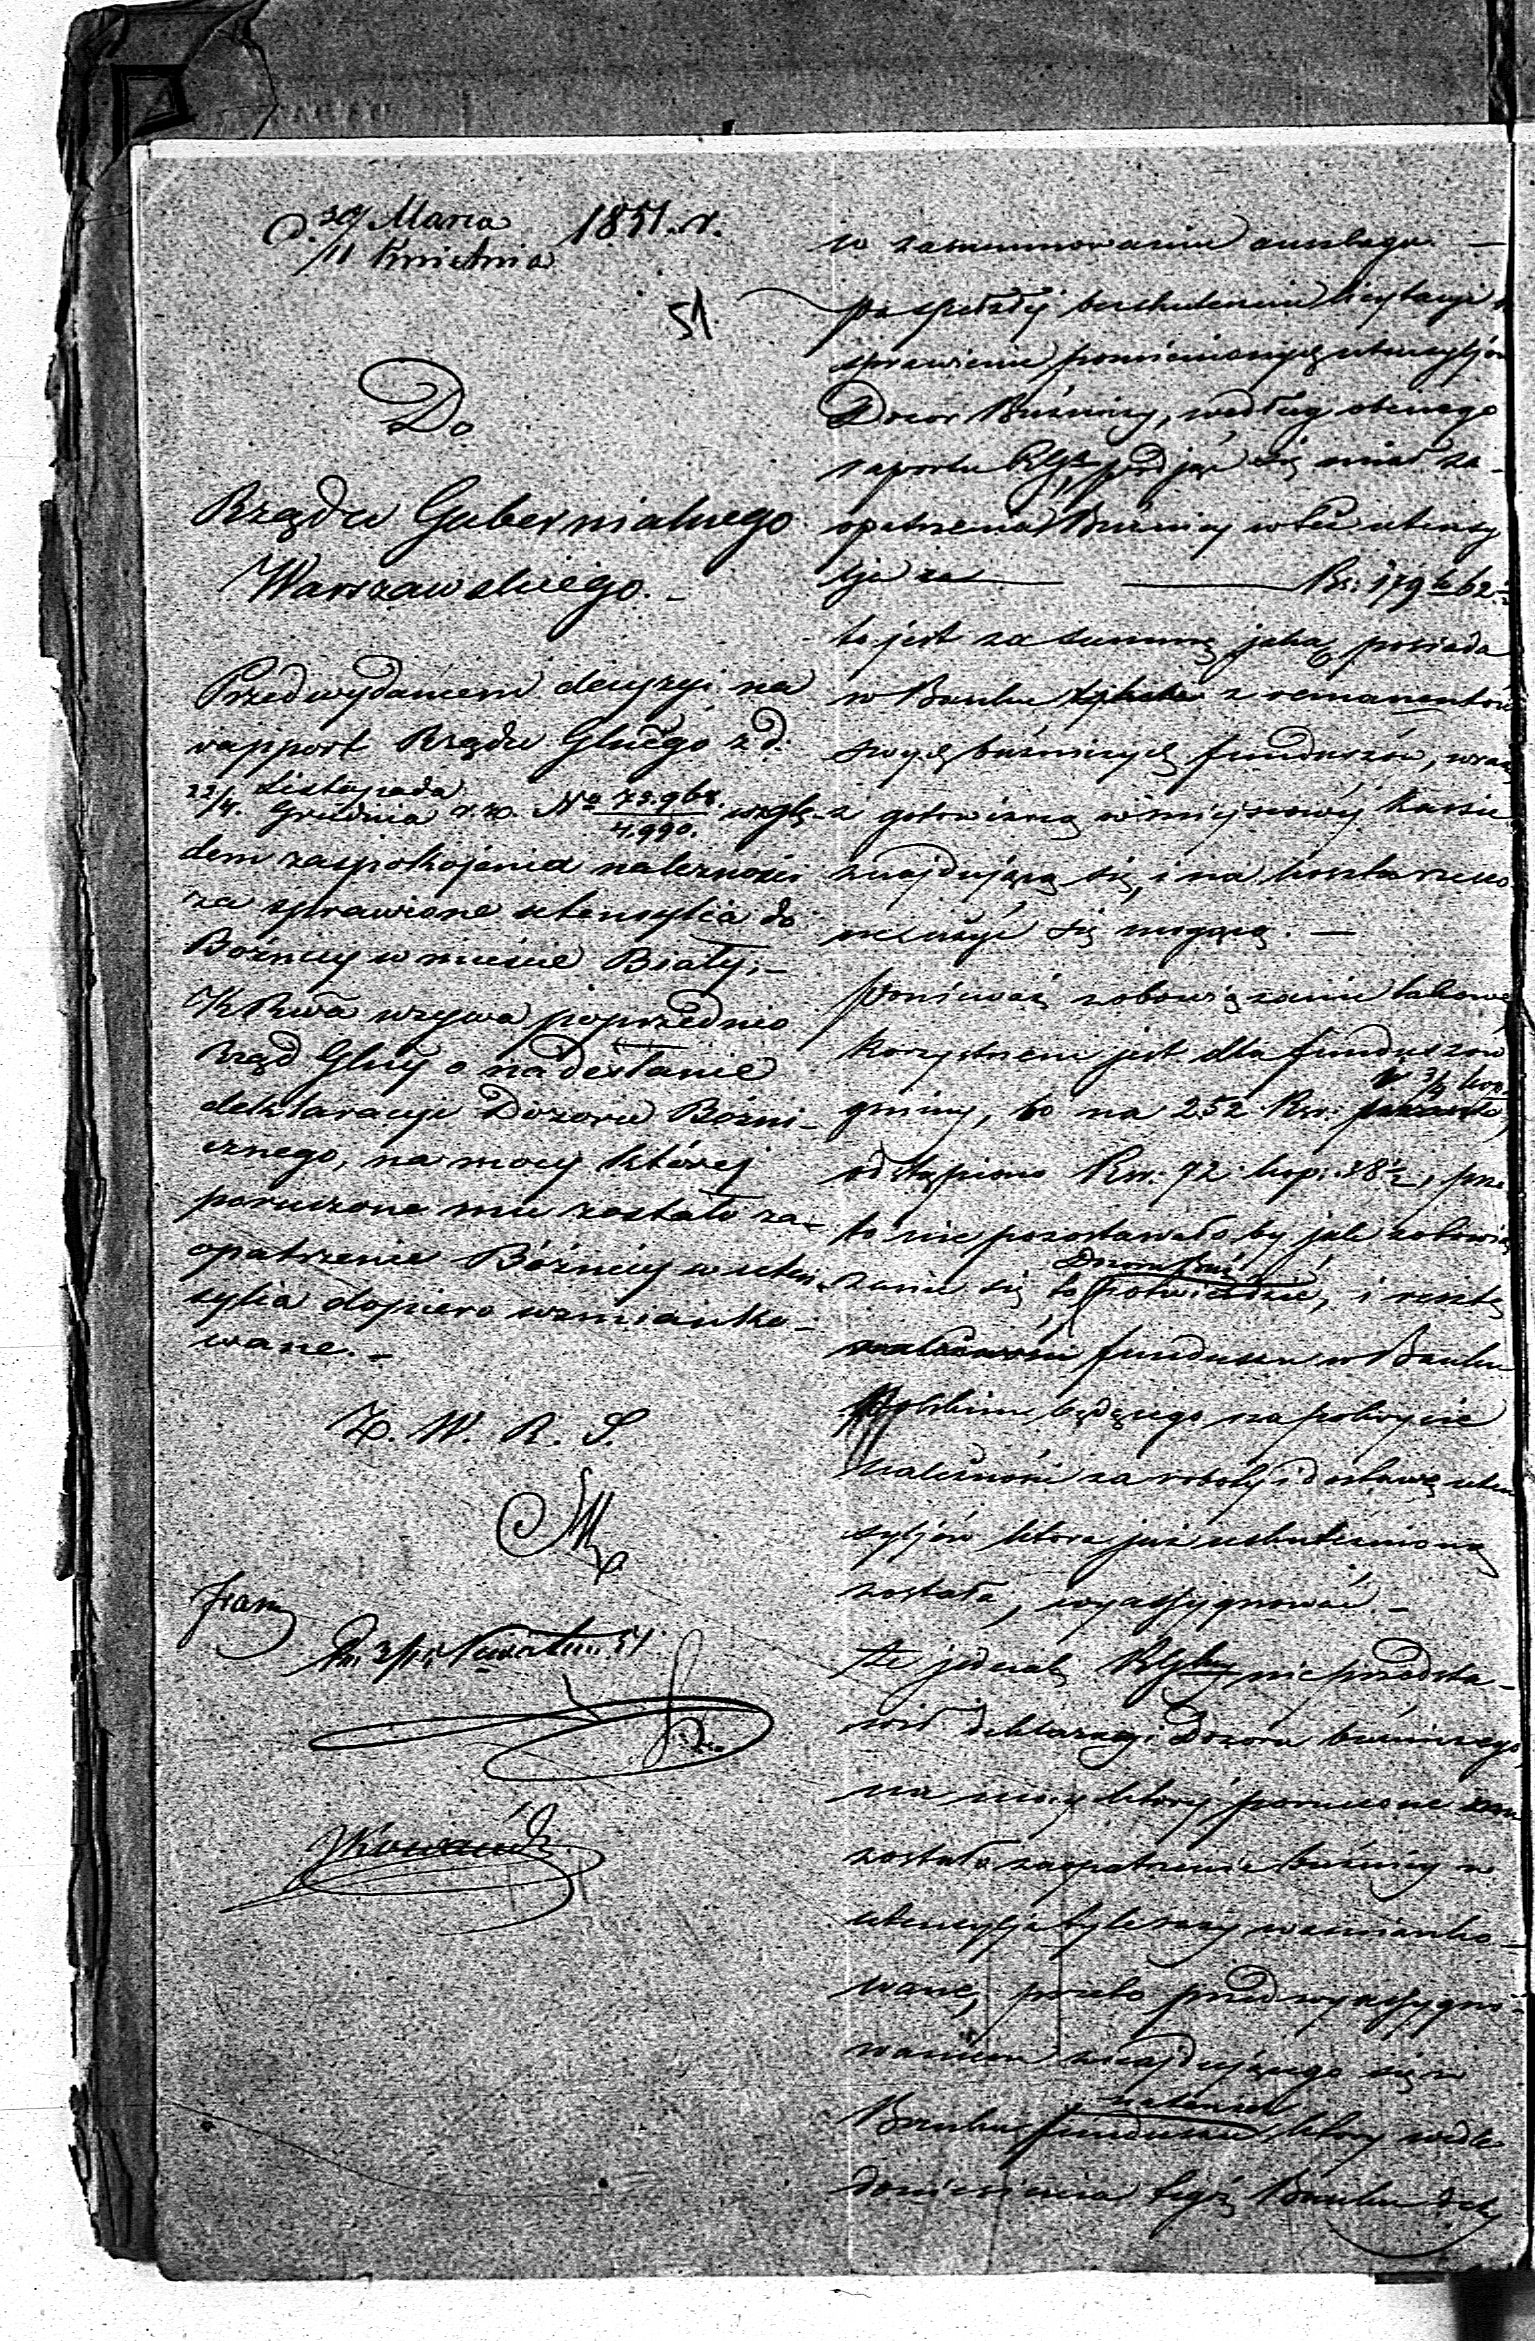 D. 30/ Marca 1851. r.
/11 Kwietnia
51.
Do
Rządu Gubernialnego
Warszawskiego. –
Przed wydaniem decyzyi na
rapport Rządu Glnego z d.
22/4. Listopada/Grudnia r. z. No 75.968./4.990. wzglę-
dem zaspokojenia należności
za sprawione utensylia do
Bóżnicy w mieście Biały; –
KRwa wzywa poprzednio
Rząd Glny o nadesłanie
deklaracyi Dozoru Bożni-
cznego, na mocy której
poruczone mu zostało za-
opatrzenie Bóżnicy w uten-
sylia dopiero wzmianko-
wane. –
Z. W. R. S.
w zasummowaniu anszlagu. –
po spełzłej bezskutecznie licytacyi
sprawienie pomienionych utensyljów
Dozor Bóżniczy, według obecnego
raportu RGł podjąć się miał za-
opatrzenia Bóżnicy w też utensy
lja za Rs. 179 k 62
to jest za summę jaką posiada
w Banku z remanentów
swych bóżniczych funduszów, wraz
z gotowizną w miejscowej kassie
znajdującą się, i na koszta rze
użyć się mogącą. –
Ponieważ zobowiązanie takowe
korzystnem jest dla funduszów
gminy, bo na 252 Rsr.
odstąpiono Rsr. 72 kop. 28½, prze
to nie pozostawałoby jak zobowią
zanie się to Dozoru Boż potwierdzić, i resztę
funduszu w Banku
Polskim będącego na pokrycie
należności za roboty i dostawę uten
syljów która już uskutecznioną
została, wyassygnować –
że jednak RGlny nie przedsta-
wił deklaracyi Dozoru bóżniczego,
na mocy której poruczone
zostało zaopatrzenie bóżnicy w
utensylja tyle razy wzmianko-
wane, przeto przed wyassygno-
waniem znajdującego się w
Banku funduszu, który wedle
doniesienia tegoż Banku